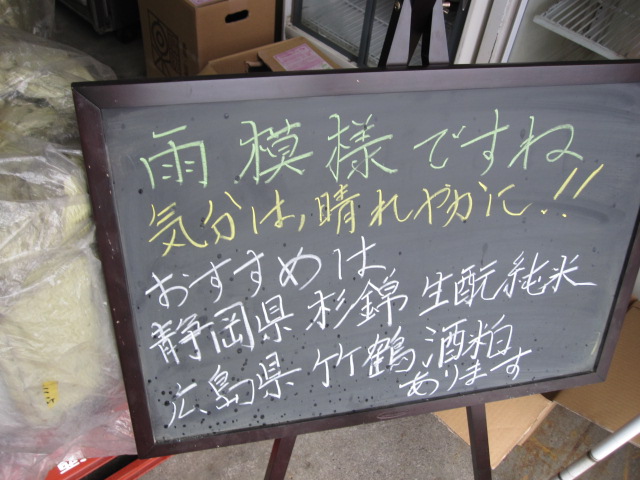 雨模様ですね
気分は,晴れやかに!!
おすすめは
静岡県 杉錦 生酛純米
広島県 竹鶴 酒粕
あります